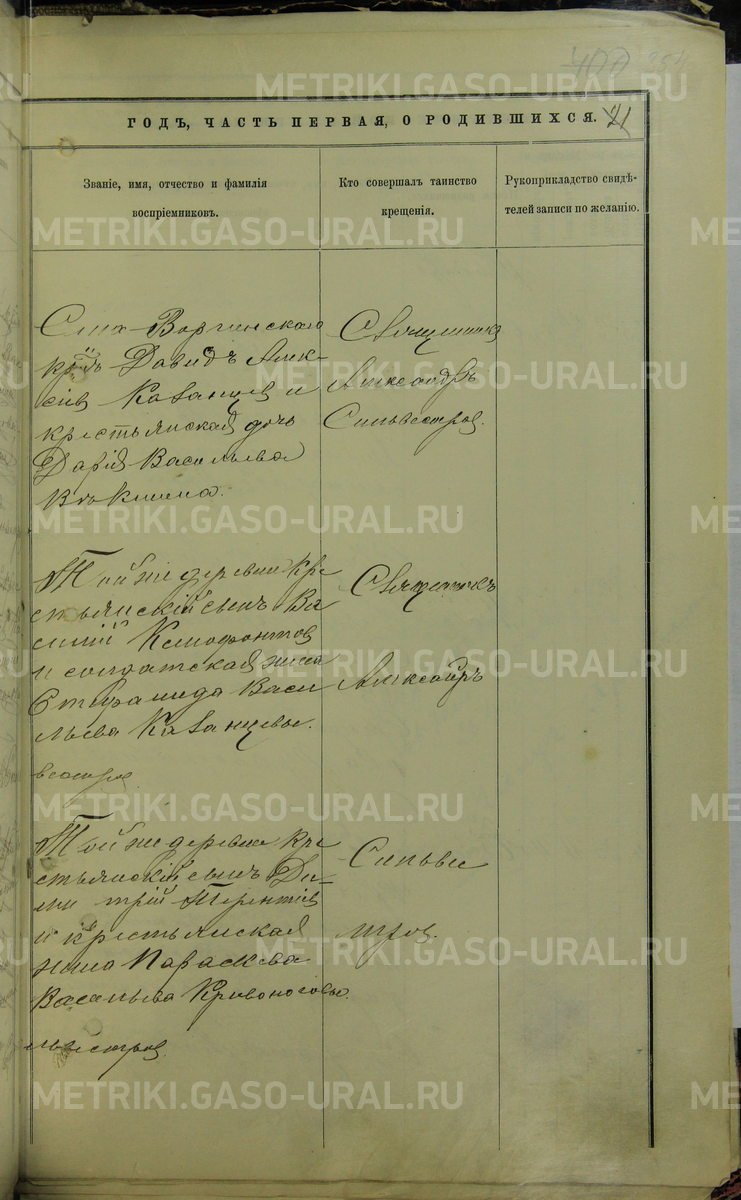 ГОДЪ, ЧАСТЬ ПЕРВАЯ, О РОДИВШИХСЯ. 21
Званіе, имя, отчество и фамилія
воспріемниковъ.
Кто совершалъ таинство
крещенія.
Рукоприкладство свидѣ-
телей записи по желанію.
Давидъ Алек-
сіевъ Казанцевъ и
крестьянская дочь
Дарія Васильева
Священникъ
Александръ
Сильвестровъ.
Той же деревни кре
стьянскій сынъ Ва
силій Ксенофонтовъ
и солдатская жена
Стефанида Васи
льева Казанцевы.
Священникъ
Александръ
Той же деревни кре
стьянскій сынъ Ди-
митрій Терентіевъ
и крестьянская
жена Параскева
Васильева Кривоноговы.
Сильве
стровъ.
METRIKI.GASO-URAL.RU